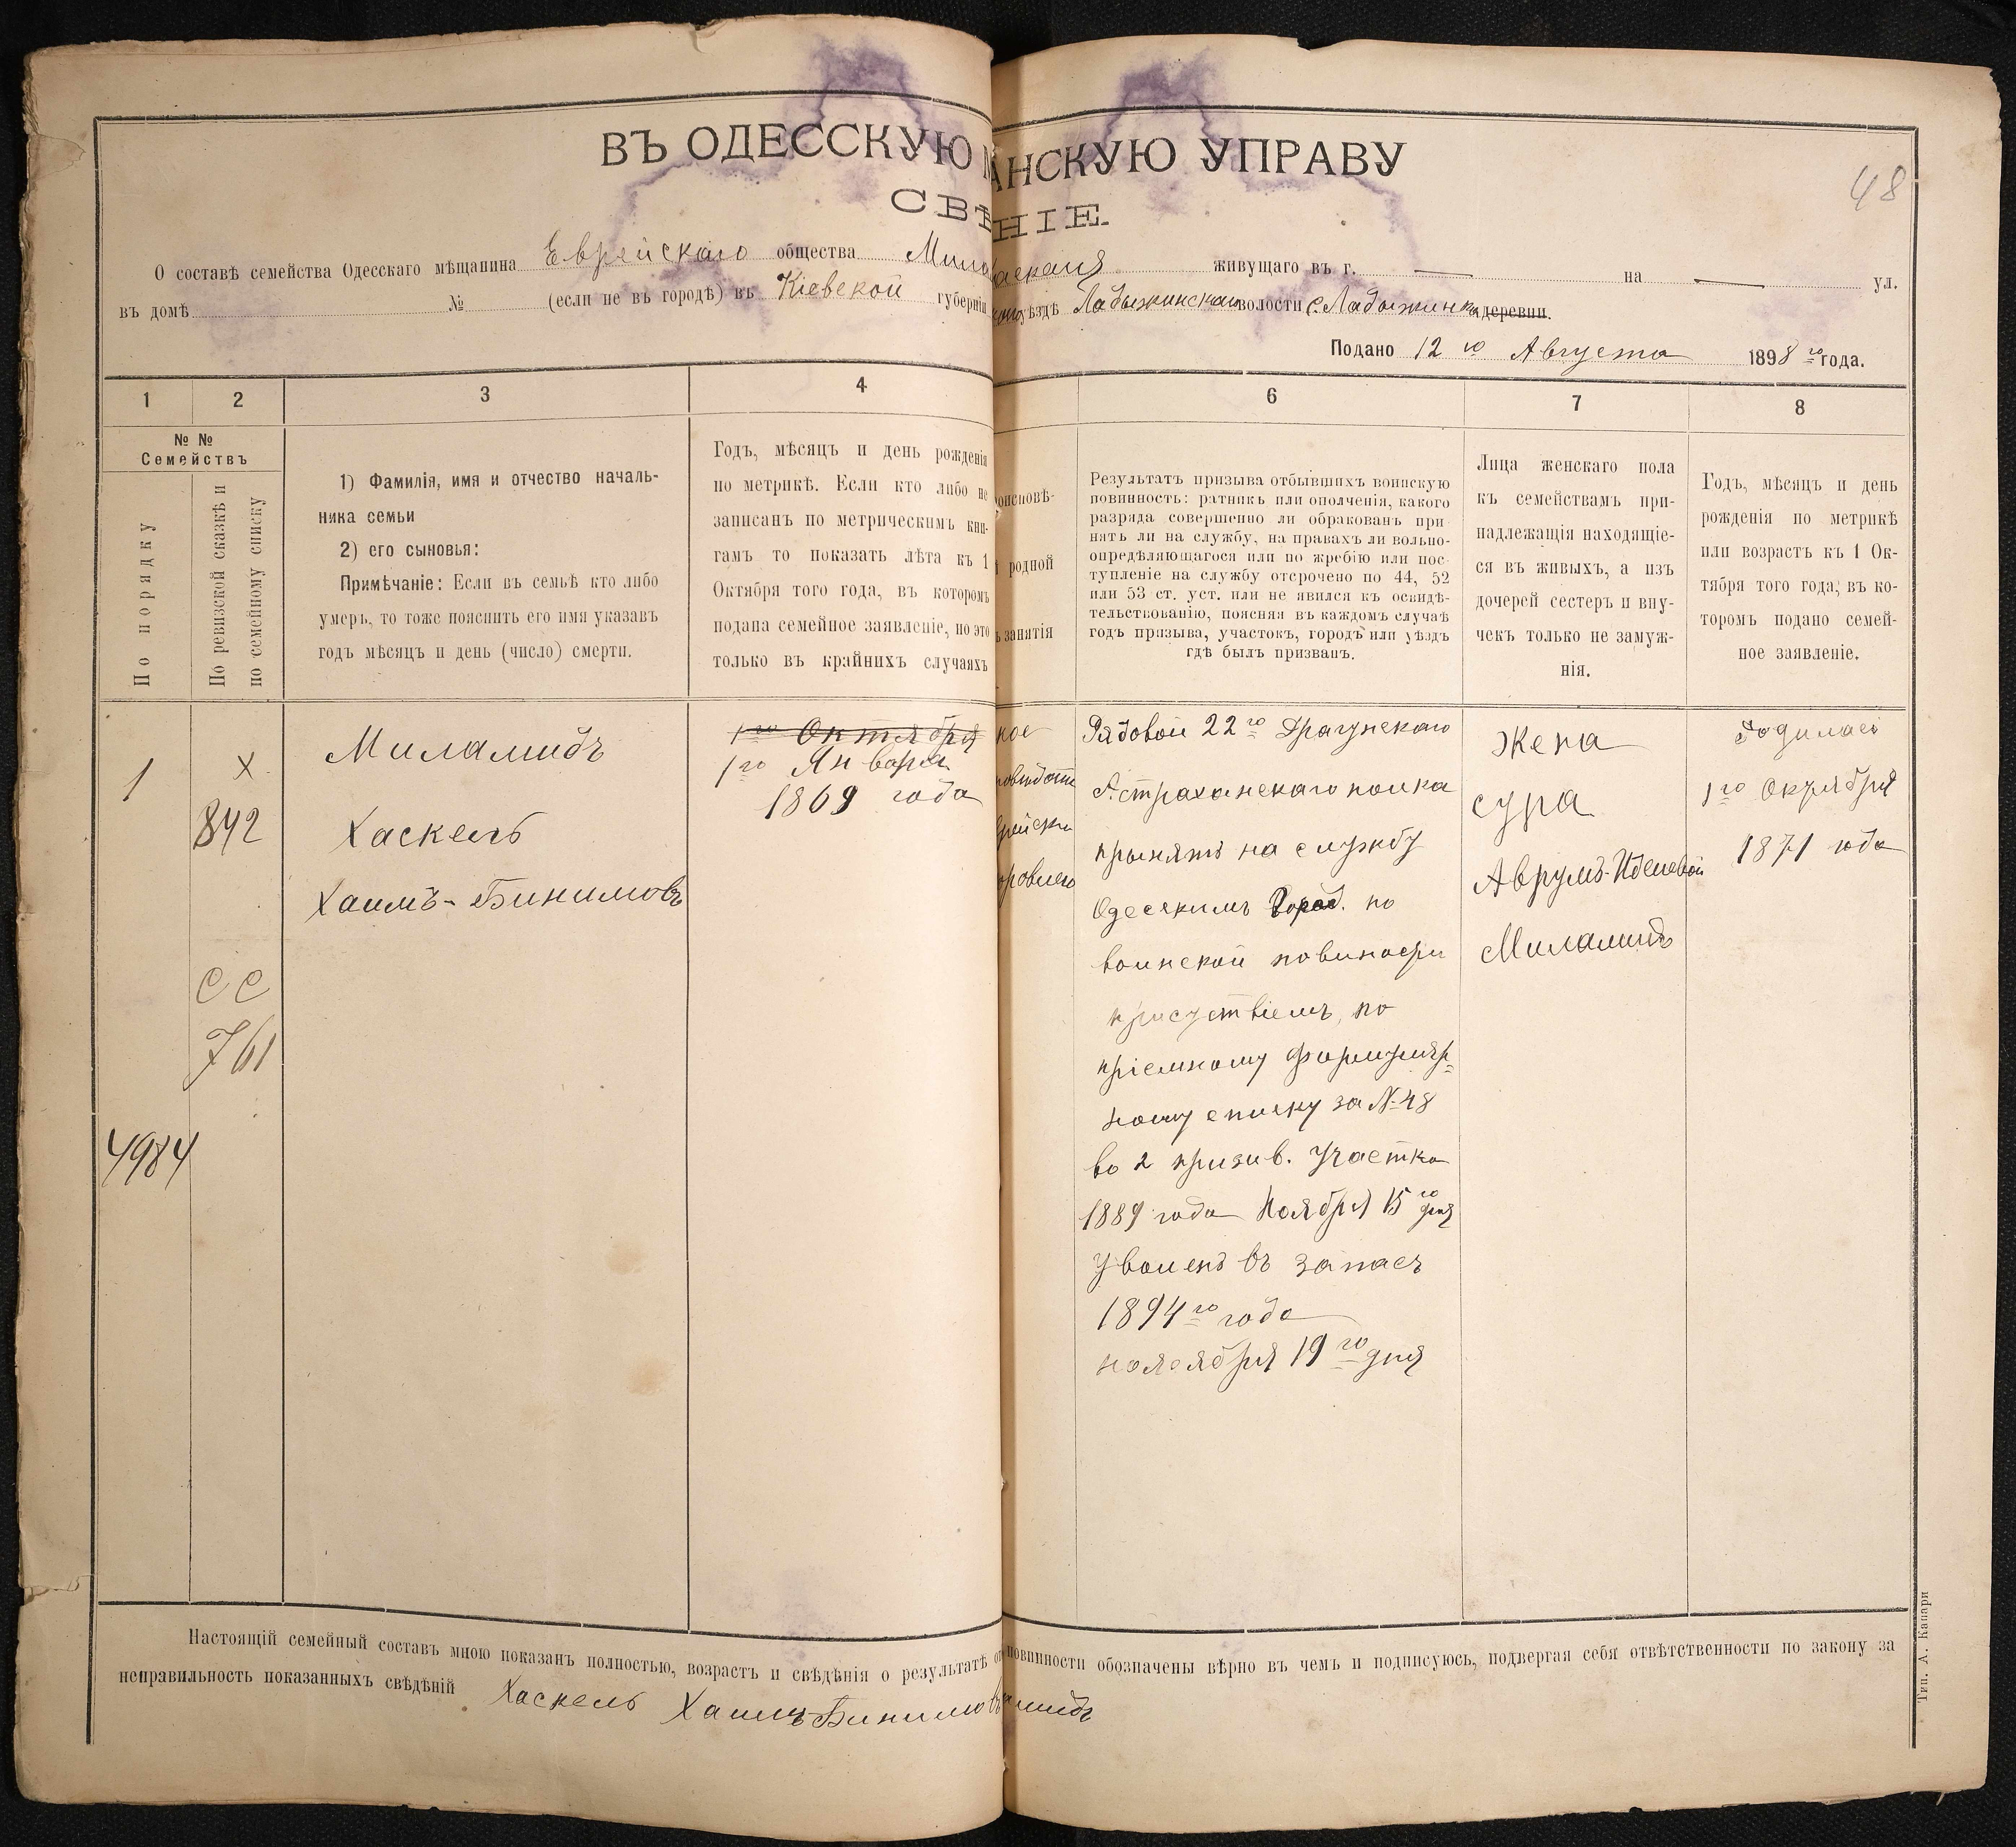 ВЪ ОДЕССКУЮ АНСКУЮ УПРАВУ
48
СВѢ НІЕ.
О составѣ семейства Одесскаго мѣщанина Еврейскаго общества живущаго въ г. — на — ул.
въ домѣ № (если не въ городѣ) въ Кіевской губерніи уѣздѣ Ладыжинской волости с. Ладыжинка деревни.
Подано 12го Августа 1898го года.
1 2 3 4 6 7 8
№ №
Семействъ
По порядку
По ревизской сказкѣ и
по семейному списку
1) Фамилія, имя и отчество началь-
ника семьи
2) его сыновья:
Примѣчаніе: Если въ семьѣ кто либо
умеръ, то тоже пояснить его имя указавъ
годъ мѣсяцъ и день (число) смерти.
Годъ, мѣсяцъ и день рожденія
по метрикѣ. Если кто либо не
записанъ по метрическимъ кни-
гамъ то показать лѣта къ 1
Октября того года, въ которомъ
подана семейное заявленіе, но это
только въ крайнихъ случаяхъ
роисповѣ-
родной
занятія
Результатъ призыва отбывшихъ воинскую
повинность: ратникъ или ополченія, какого
разряда совершенно ли обракованъ при
нятъ ли на службу, на правахъ ли вольно-
опредѣляющагося или по жребію или пос
тупленіе на службу отсрочено по 44, 52
или 53 ст. уст. или не явился къ освидѣ-
тельствованію, поясняя въ каждомъ случаѣ
годъ призыва, участокъ, городъ или уѣздъ
гдѣ былъ призванъ.
Лица женскаго пола
къ семействамъ при-
надлежащія находящіе-
ся въ живыхъ, а изъ
дочерей сестеръ и вну-
чекъ только не замуж-
нія.
Годъ, мѣсяцъ и день
рожденія по метрикѣ
или возрастъ къ 1 Ок-
тября того года, въ ко-
торомъ подано семей-
ное заявленіе.
1
х
842
СС
761
4984
Миламидъ
Хаскель
Хаимъ-Бинимовъ
1го Октября
1го Января
1869 года
Рядовой 22го Драгунскаго
Астраханскаго полка
принятъ на службу
Одесскимъ Город. по
воинской повиности
присуствіемъ, по
пріемному формуляр-
ному списку за №48
во 2 призив. участка
1889 года Ноября 15го дня
Уволенъ въ запасъ
1894го года
нояоября 19го дня
Жена
сура
Аврумъ-Иделевой
Миламидъ
Родилась
1го Октября
1871 года
Настоящій семейный составъ мною показанъ полностью, возрастъ и свѣдѣнія о результатѣ повинности обозначены вѣрно въ чемъ и подписуюсь, подвергая себя отвѣтственности по закону за
неправильность показанныхъ свѣдѣній Хаскель Хаимъ-Бинимовъ
Тип. А. Капари